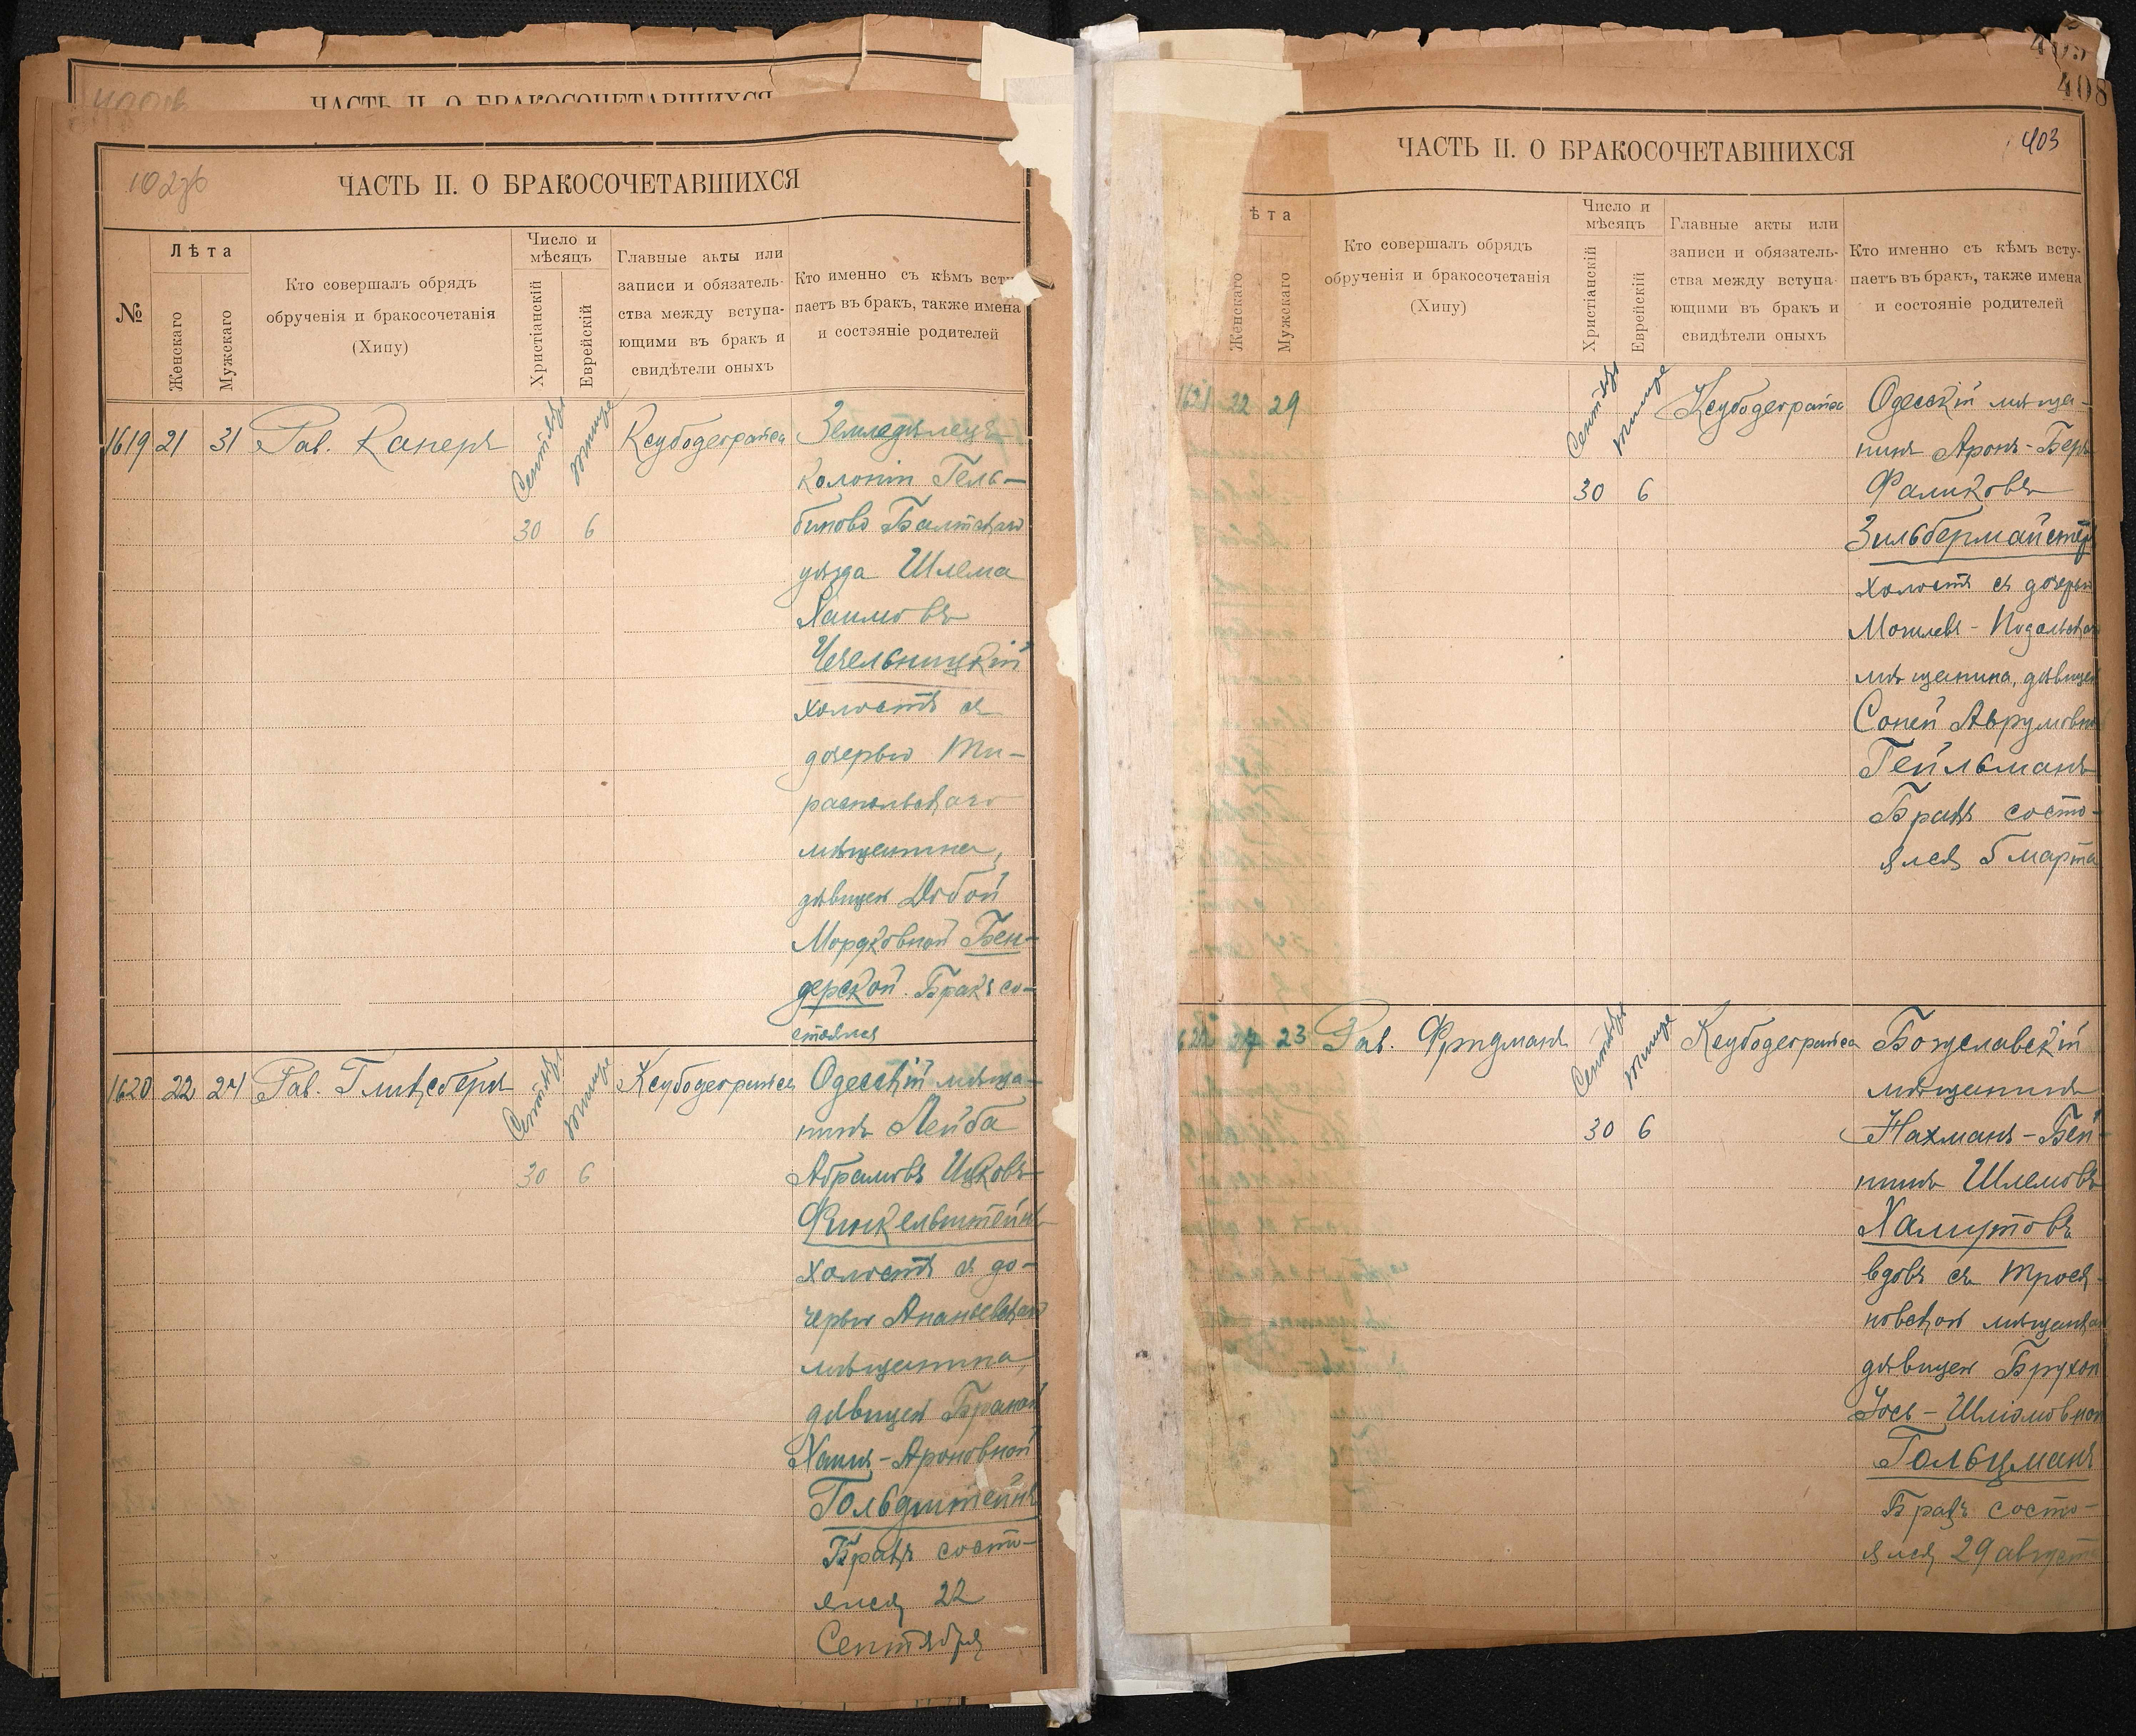 ЧАСТЬ II. О БРАКОСОЧЕТАВШИХСЯ
ЧАСТЬ II. О БРАКОСОЧЕТАВШИХСЯ
№
Лѣта
Женскаго
Мужскаго
Кто совершалъ обрядъ
обрученія и бракосочетанія
(Хипу)
Число и
мѣсяцъ
Христіанскій
Еврейскій
Главные акты или
записи и обязатель-
ства между вступа-
ющими въ бракъ и
свидѣтели оныхъ
Кто именно съ кѣмъ всту
паетъ въ бракъ, также имена
и состояніе родителей
1619 21 31 Рав. Канеръ Сентября Тишре Ксубодеграйса Земледѣлецъ
колоніи Гель-
30 6 биново Балтскаго
уѣзда Шлема
Хаимовъ
Чечельницкій
холостъ съ
дочерью Ти-
распольскаго
мѣщанина,
дѣвицею Добой
Мордковной Бен-
дерской. Бракъ со-
стоялся
1620 22 24 Рав. Гликсбергъ Сентября Тишре Ксубодеграйса Одесскій мѣща-
нинъ Лейба
30 6 Абрамовъ Ицковъ
Финкельштейнъ
холостъ съ до-
черью Ананьевскаго
мѣщанина,
дѣвицею Браной
Хаия-Ароновной
Гольдштейнъ
Бракъ состо-
ялся 22
Сентября
405
408
ЧАСТЬ II. О БРАКОСОЧЕТАВШИХСЯ
403
ѣта
Женскаго
Мужскаго
Кто совершалъ обрядъ
обрученія и бракосочетанія
(Хипу)
Число и
мѣсяцъ
Христіанскій
Еврейскій
Главные акты или
записи и обязатель-
ства между вступа-
ющими въ бракъ и
свидѣтели оныхъ
Кто именно съ кѣмъ всту-
паетъ въ бракъ, также имена
и состояніе родителей
1621 22 29 Сентября Тишре Ксубодеграйса Одесскій мѣща-
нинъ Аронъ-Беръ
30 6 Фаликовъ
Зильбермайстеръ
холостъ съ дочерью
Могилевъ-Подольскаго
мѣщанина, дѣвицею
Соней Аврумовной
Гейльманъ
Бракъ состо-
ялся 5 марта
1622 24 23 Рав. Фридманъ Сентября Тишре Ксубодеграйса Богуславскій
мѣщанинъ
30 6 Нахманъ-Бей-
нишъ Шлемовъ
Хамутовъ
вдовъ съ Трося-
новской мѣщанкой
дѣвицею Брухой
Хось-Шліомовной
Гольцманъ
Бракъ состо-
ялся 29 августа